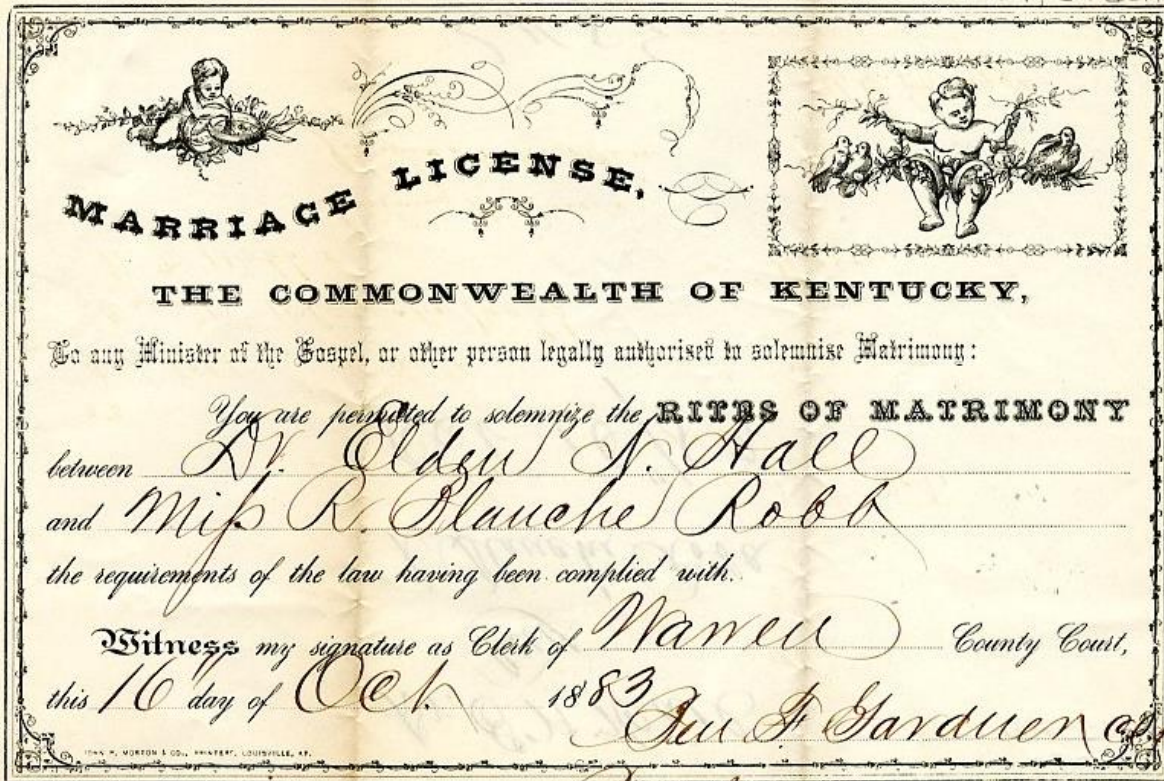 MARRIAGE LICENSE,
THE COMMONWEALTH OF KENTUCKY,
To any Minister of the Gospel, or other person legally authorized to solemnize Matrimony:
You are permitted to solemnize the RITES OF MATRIMONY
between Dr. Elden N. Hall
and Miss R. Blanche Robb
the requirements of the law having been complied with.
Witness my signature as Clerk of Warren County Court,
this 16 day of Oct. 1883
F. Gardner
JOHN P. MORTON & CO., PRINTERS, LOUISVILLE, KY.